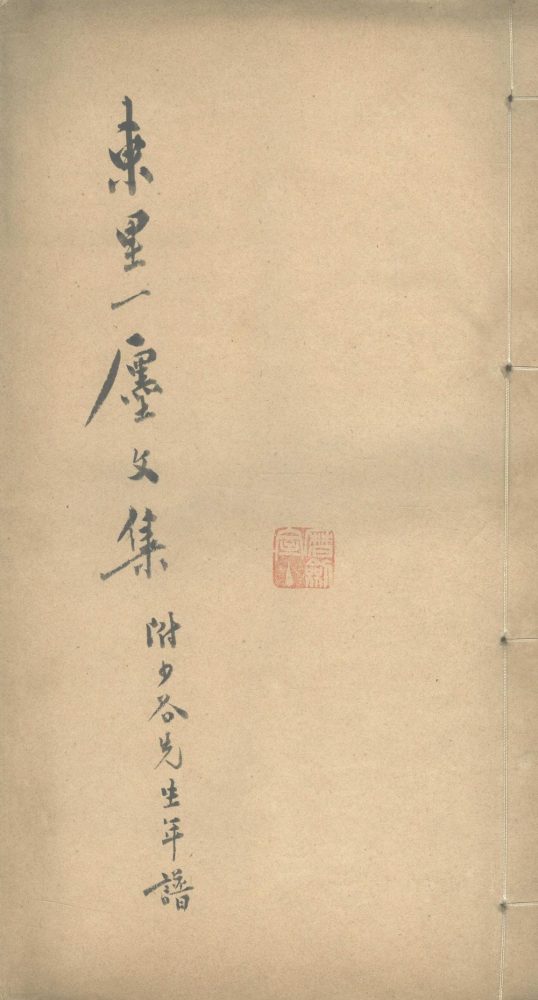 東里一廛文集
附少谷先生年譜